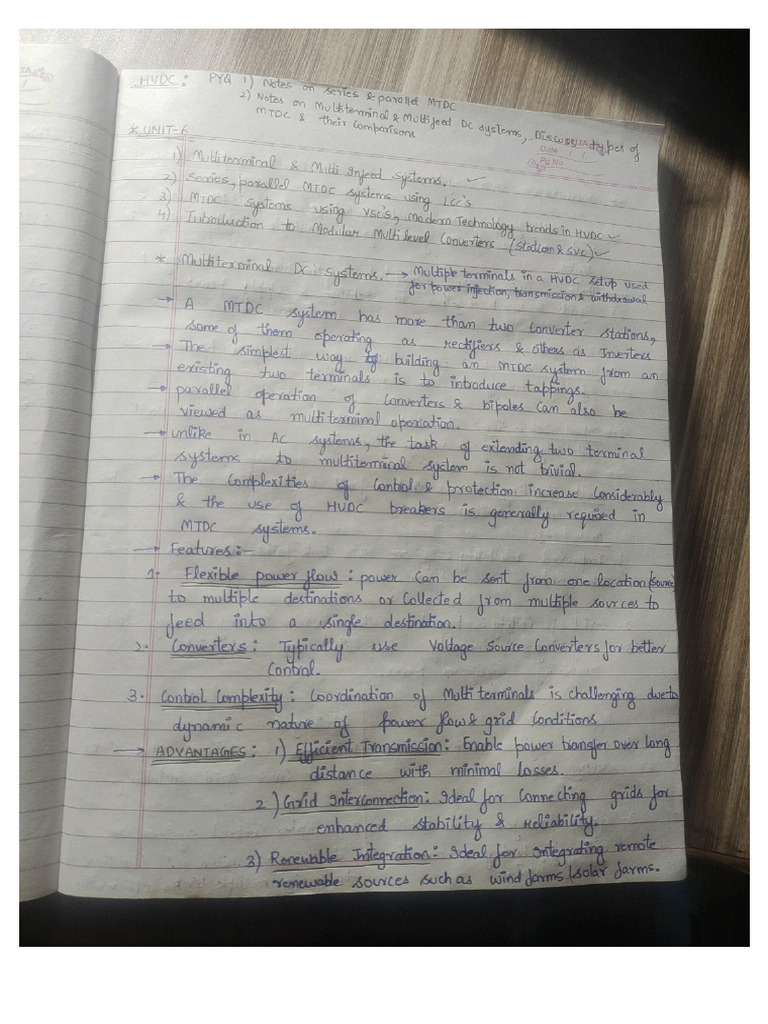 HVDC : PYQ 1) Notes on series & parallel MTDC
2) Notes on Multiterminal & Multifeed DC systems, Discuss types of
MTDC & their Comparisons
Date
Pg No.
* UNIT-6
1) Multiterminal & Multi Infeed Systems. ✓
2) Series, parallel MTDC systems using LCC's
3) MTDC systems using VSC's, Modern Technology trends in HVDC ✓
4) Introduction to Modular Multilevel Converters (Statcom & SVC) ✓
* Multiterminal DC systems. → Multiple terminals in a HVDC setup used
for power injection, transmission & withdrawal
→ A MTDC system has more than two Converter stations,
some of them operating as rectifiers & others as Inverters
→ The simplest way of building an MTDC system from an
existing two terminals is to introduce tappings.
→ parallel operation of Converters & bipoles can also be
viewed as multiterminal operation.
→ unlike in AC systems, the task of extending two terminal
systems to multiterminal system is not trivial.
→ The Complexities of Control & protection increase Considerably
& the use of HVDC breakers is generally required in
MTDC systems.
→ Features :-
1. Flexible power flow : power can be sent from one location (source)
to multiple destinations or Collected from multiple sources to
feed into a single destination.
2. Converters : Typically use Voltage Source Converters for better
Control.
3. Control Complexity : Coordination of Multi terminals is challenging due to
dynamic nature of power flow & grid Conditions
→ ADVANTAGES : 1) Efficient Transmission : Enable power transfer over long
distance with minimal losses.
2) Grid Interconnection : Ideal for Connecting grids for
enhanced stability & reliability.
3) Renewable Integration : Ideal for Integrating remote
renewable sources such as wind farms / solar farms.